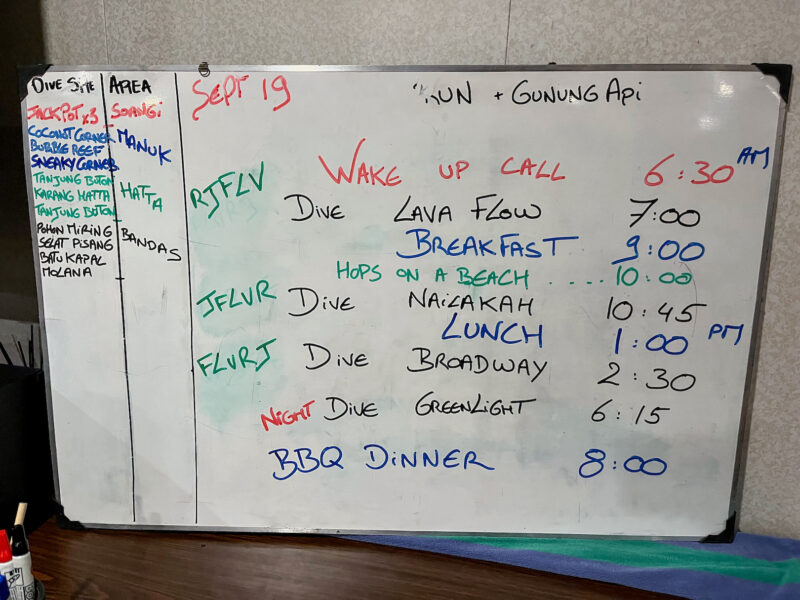 DIVE SITE AREA
JACKPOT x3 SOANGI
COCONUT CORNER
BUBBLE REEF MANUK
SNEAKY CORNER
TANJUNG BUTON
KARANG HATTA HATTA
TANJUNG BUTON
POHON MIRING
SELAT PISANG BANDAS
BATU KAPAL
MOLANA
SEPT 19 + GUNUNG APi
WAKE UP CALL 6:30 AM
RJFLV DIVE LAVA FLOW 7:00
BREAKFAST 9:00
HOPS ON A BEACH .... 10:00
JFLVR DIVE NAILAKAH 10:45
LUNCH 1:00 PM
FLVRJ DIVE BROADWAY 2:30
NIGHT DIVE GREENLIGHT 6:15
BBQ DINNER 8:00